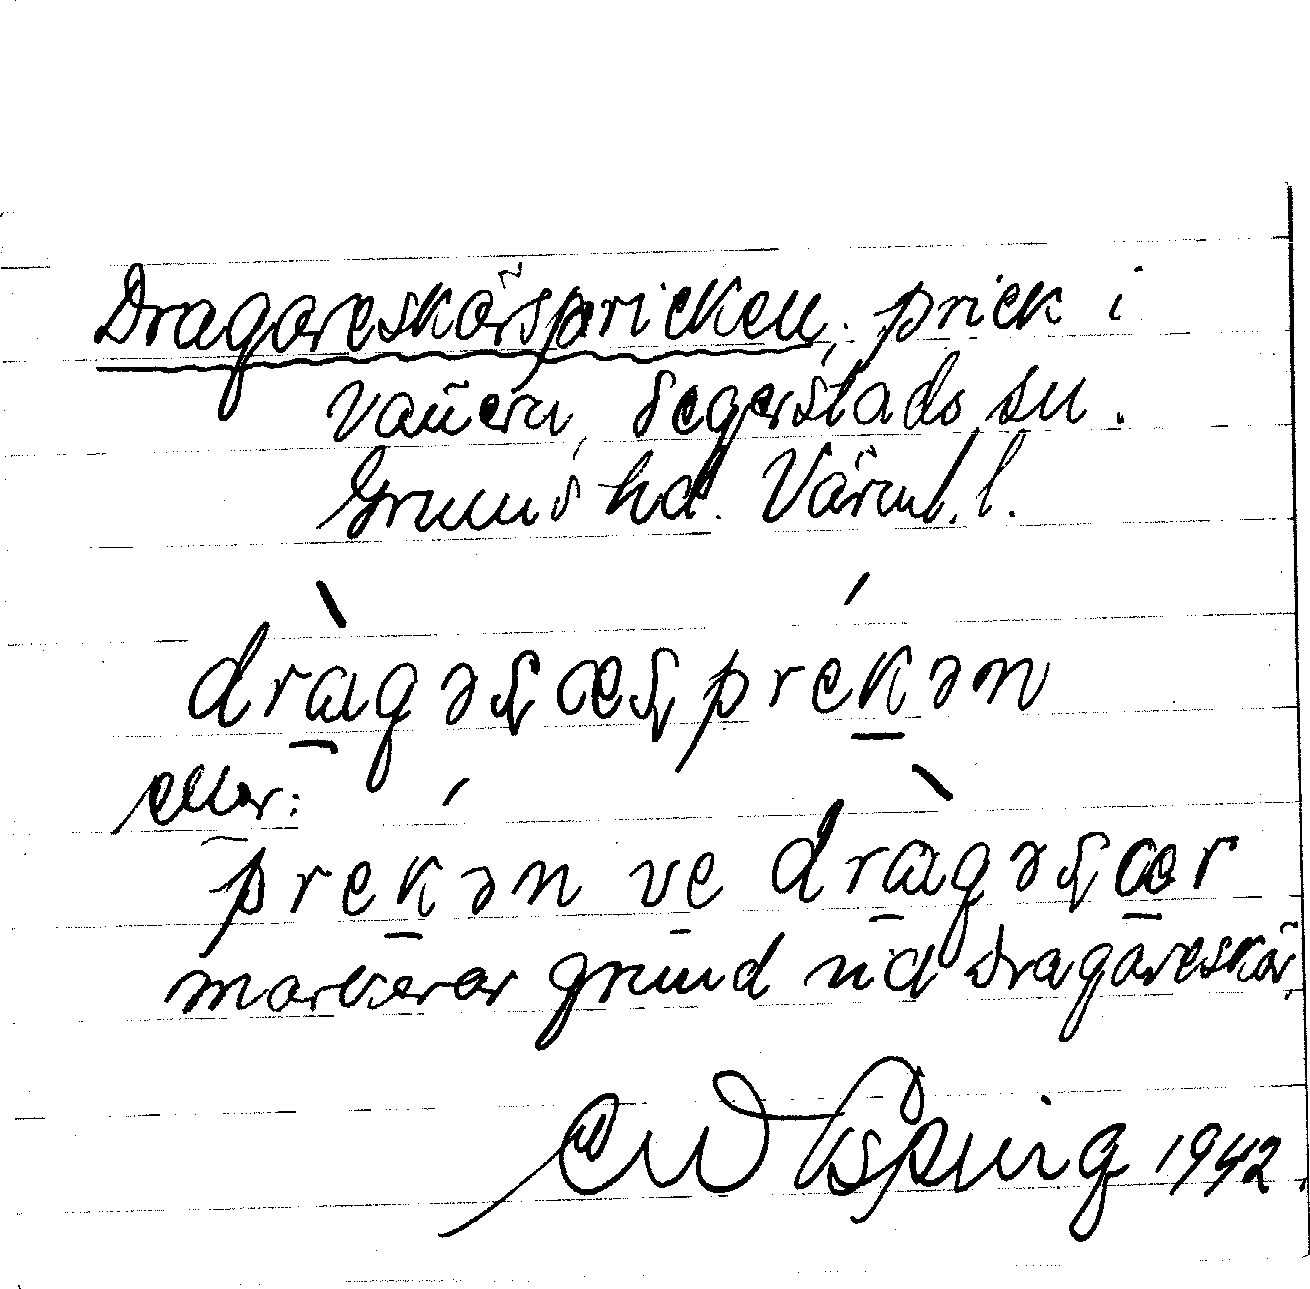 Dragareskärspricken, prick i
Vänern, Segerstads sn.
Grums hd. Värml. l.
dràgəʂæʂprékən
eller:
prékən ve dràgəʂær
markerar grund vid Dragareskär,
1942.